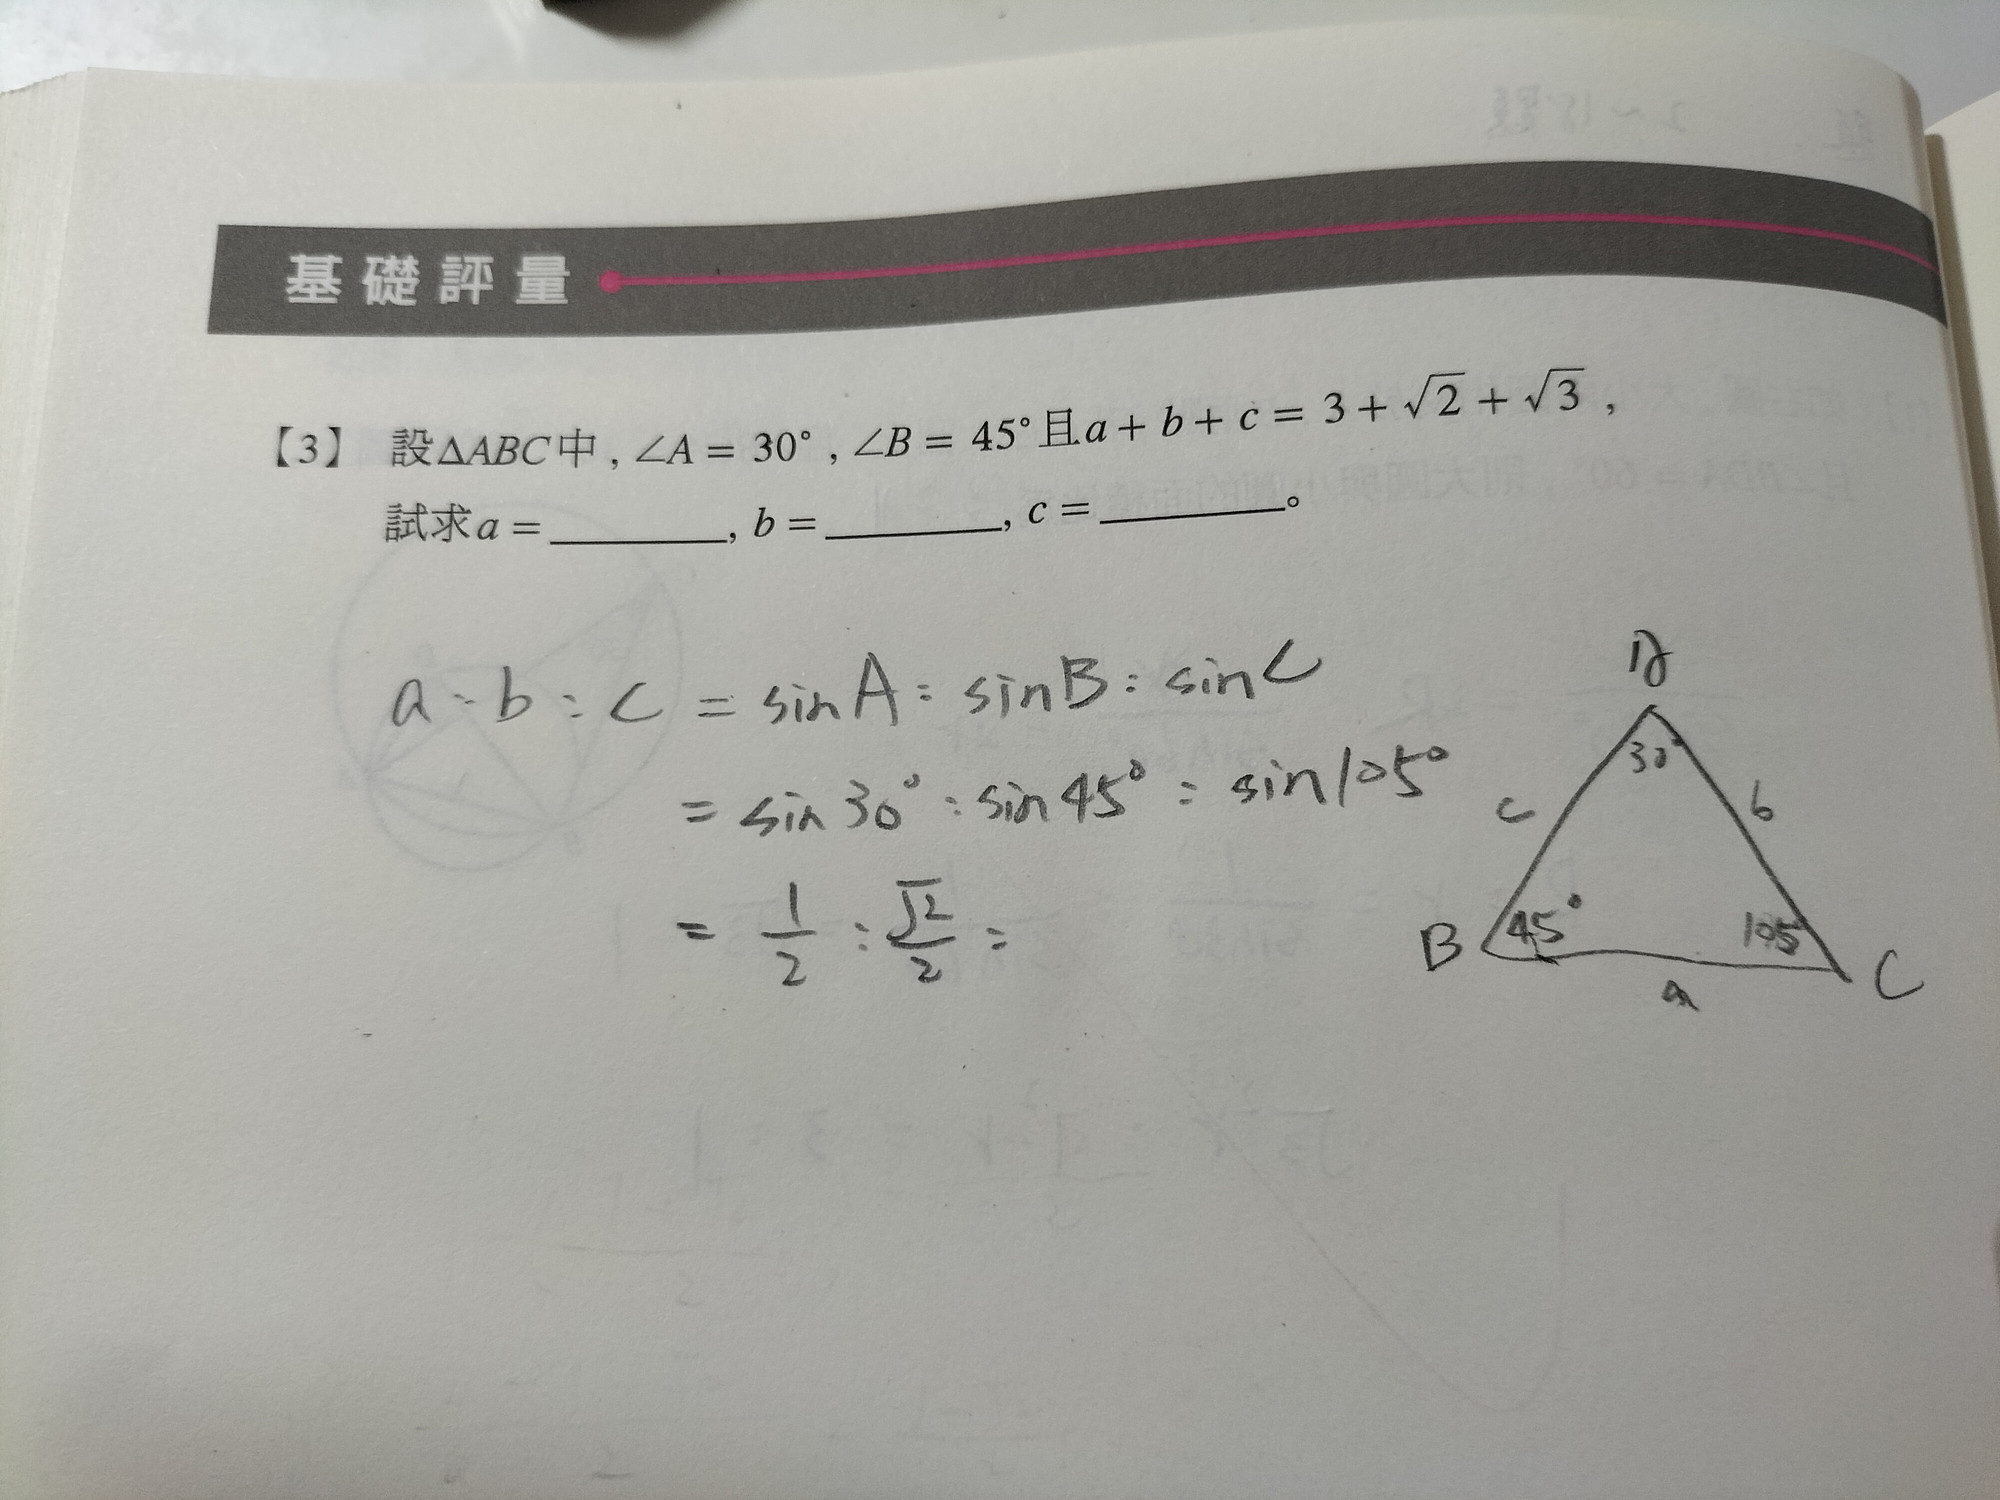 基礎評量
【3】 設ΔABC中, ∠A = 30°, ∠B = 45°且a + b + c = 3 + √2 + √3,
試求a = ________, b = ________, c = ________。
a : b : c = sin A : sin B : sin C
= sin 30° : sin 45° : sin 105°
= 1/2 : √2/2 :
A
30°
c
b
B
45°
105°
C
a